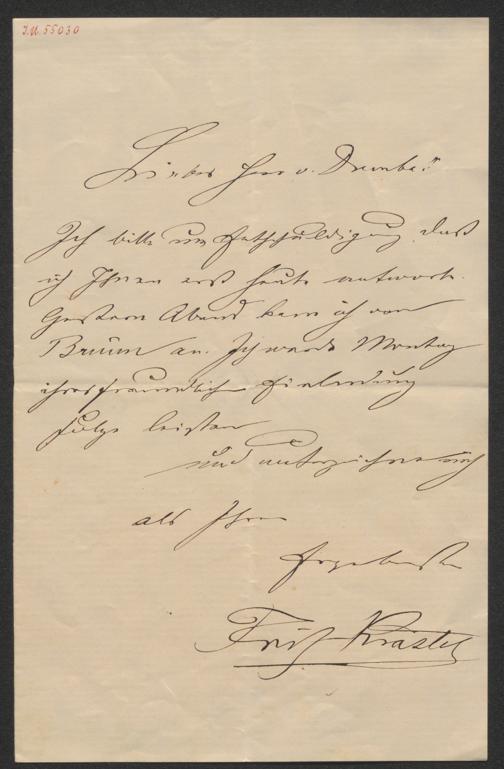 I.N. 55030
Liebes Herr v. Dumba!
Ich bitte um Entschuldigung, daß
ich Ihnen erst heute antworte.
Gestern Abend kam ich von
Brünn an. Ich werde Montag
ihrer freundlichen Einladung
folge leisten
und unterzeichne mich
als Ihr
Ergebenster
Fritz Krastel